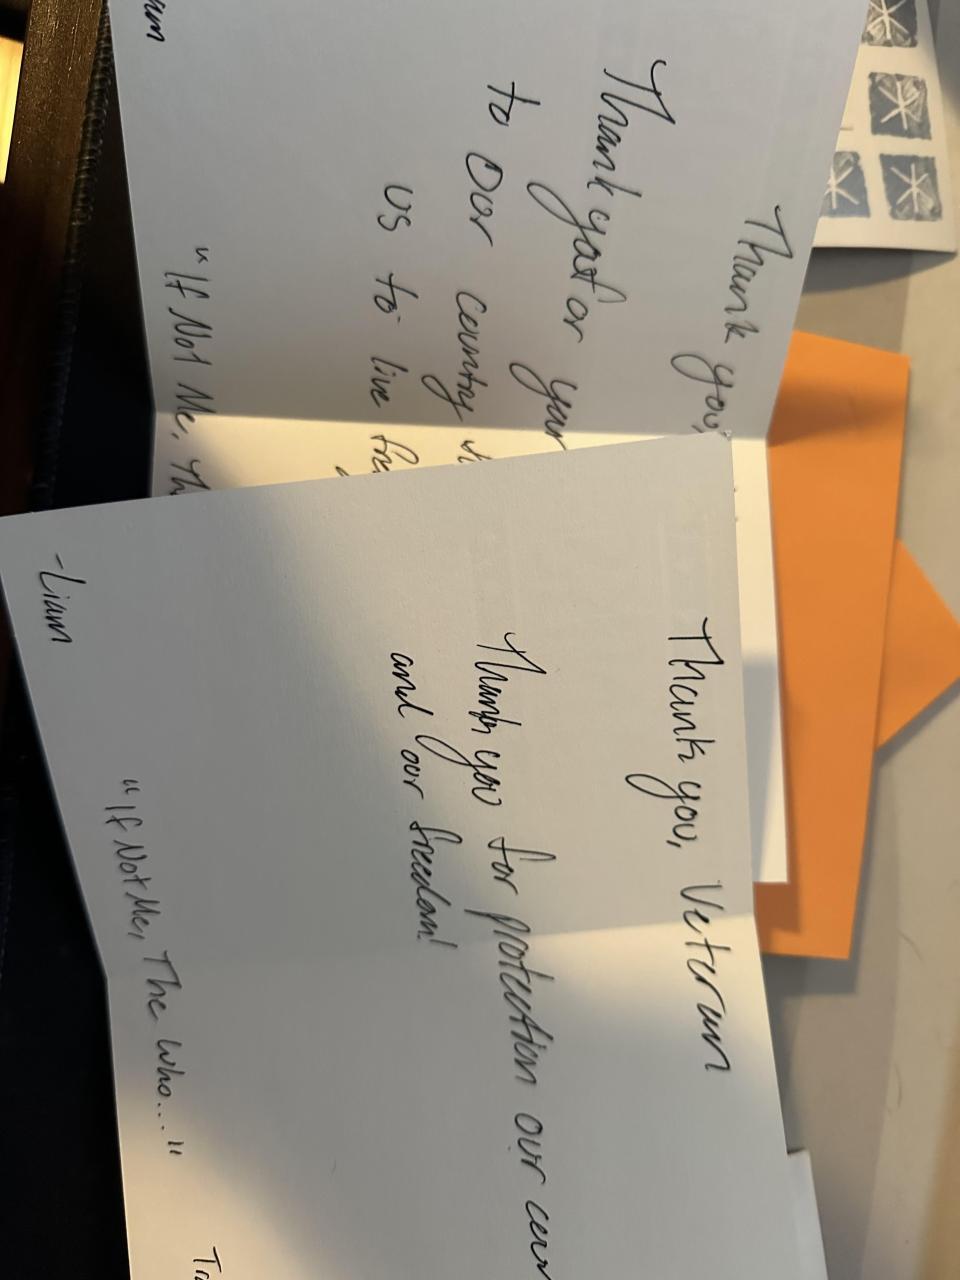 Thank you,
Thank you for your
to our country
us to live
"If Not Me, Th
am
Thank you, Veteran
Thank you for protection our
and our freedom!
"If Not Me, The Who..."
-Liam